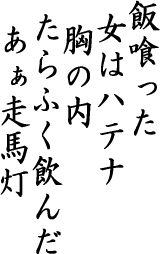 飯喰った
女はハテナ
胸の内
たらふく飲んだ
あぁ走馬灯